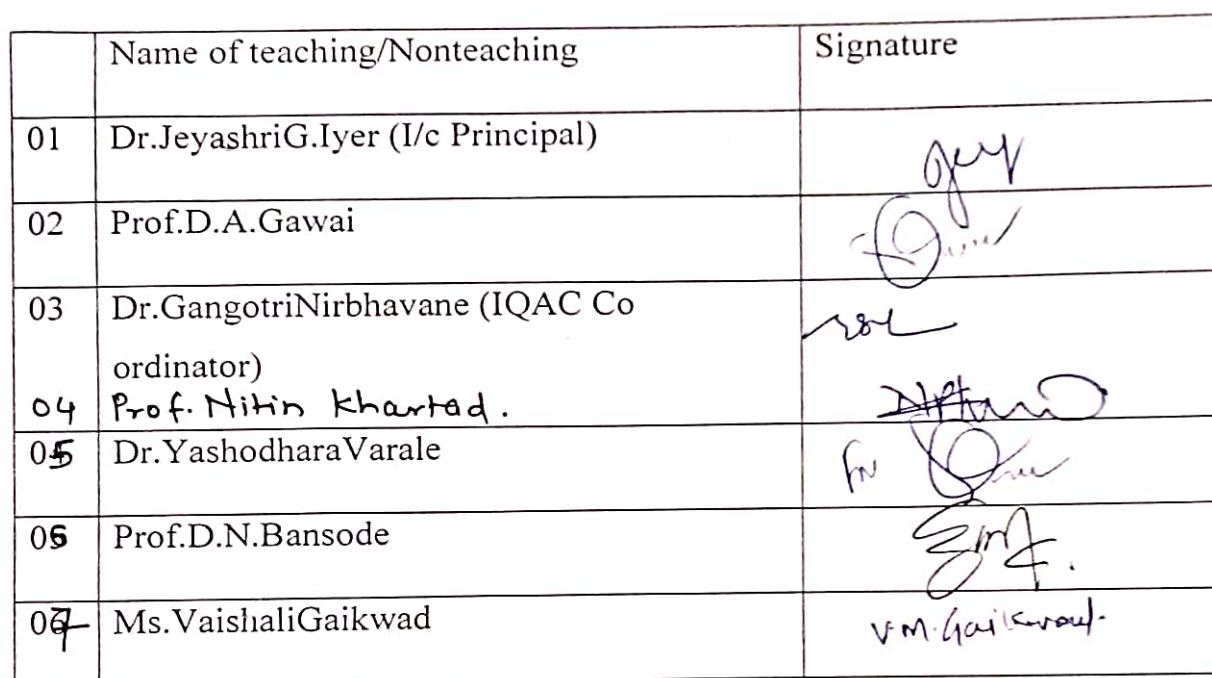 Name of teaching/Nonteaching Signature
01 Dr.JeyashriG.Iyer (I/c Principal)
02 Prof.D.A.Gawai
03 Dr.GangotriNirbhavane (IQAC Co
ordinator)
04 Prof. Nitin Khartad.
05 Dr.YashodharaVarale
06 Prof.D.N.Bansode
07 Ms.VaishaliGaikwad V.M.Gaikwad.